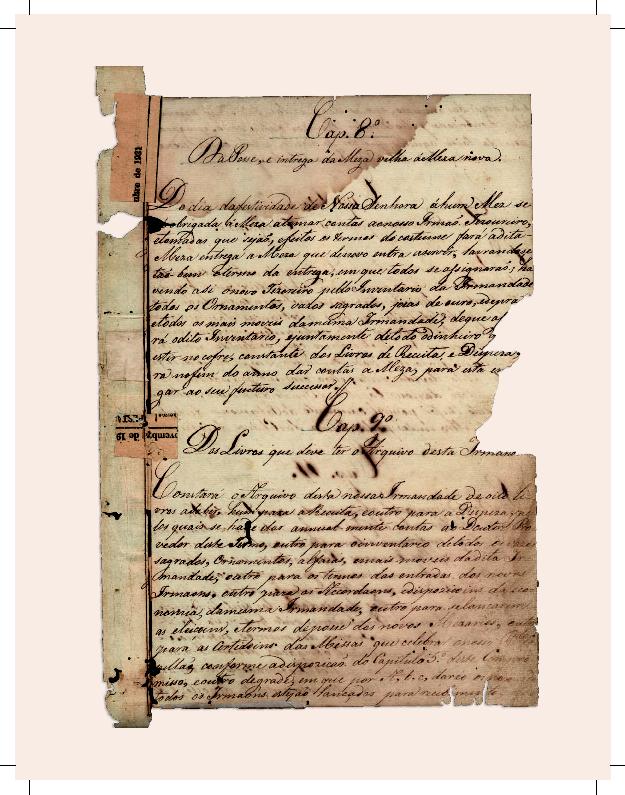 Cap. 8.º
Da Posse, e entrega da Meza velha á Meza nova.
Do dia da festividade de Nossa Senhora á hum Mez se
obrigada a Meza a tomar contas ao nosso Irmaõ Tezoureiro,
e tomadas que sejaõ, e feitos os termos do costume para a dita
Meza entrega a Meza que de novo entra a servir, lavrandose
taõ bem o termo da entrega, em que todos se assignaraõ; ha
vendo asi o novo Tezoreiro pello Inventario da Irmandade
todos os Ornamentos, vazos sagrados, pias de ouro, e de prata
e todos os mais moveis da mesma Irmandade, de que a
rá o dito Inventario, e juntamente de todo o dinheiro q
estir no cofre, constante dos Livros de Receita, e Despeza,
ra no fim do anno dar contas a Meza, para esta en
gar ao seu futuro successor.
Cap. 9.º
Dos Livros que deve ter o Arquivo desta Irman
Constará o Arquivo desta nossa Irmandade de oito li
vros a saber hum para a Receita, e outro para a Despeza, pe
los quais se ha de dar annualmente contas ao Doutor Pro
vedor deste Termo, outro para o inventario de todos os vazos
sagrados, Ornamentos, alfaias, e mais moveis da dita Ir
mandade; outro para os termos das entradas dos novos
Irmaons, outro para os Accordaons, e disposicoins da eco
nomia, da mesma Irmandade, outro para se lancarem
as eleicoins, e termos de posse dos novos Mezarios, outro
para as Certidoins das Missas que celebrar o nosso
pellaõ, conforme a disposicaõ do Capitulo 5.º deste Compro
misso, e outro de grade, em que por A, b, c,
todos os Irmaons estejaõ lancados para
ubro de 1921
ovembro de 19